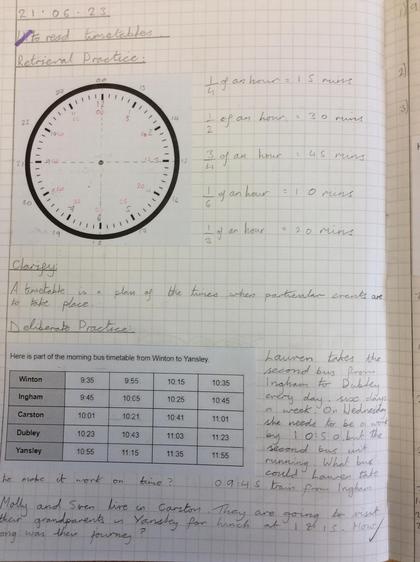 21.06.23
to read timetables
Retrieval Practice:
1/4 of an hour = 15 mins
1/2 of an hour = 30 mins
3/4 of an hour = 45 mins
1/6 of an hour = 10 mins
1/3 of an hour = 20 mins
Clarify:
A timetable is a plan of the times when particular events are
to take place.
Deliberate Practice:
Here is part of the morning bus timetable from Winton to Yansley.
Winton 9:35 9:55 10:15 10:35
Ingham 9:45 10:05 10:25 10:45
Carston 10:01 10:21 10:41 11:01
Dubley 10:23 10:43 11:03 11:23
Yansley 10:55 11:15 11:35 11:55
Lauren takes the
second bus from
Ingham to Dubley
every day, six days
a week. On Wednesday
she needs to be at work
by 10:50 but the
second bus isnt
running. What bus
could Lauren take
he make it work on time? 09:45 train from Ingham
Molly and Sven live in Carston. They are going to visit
their grandparents in Yansley for lunch at 1215. How
long was their journey?